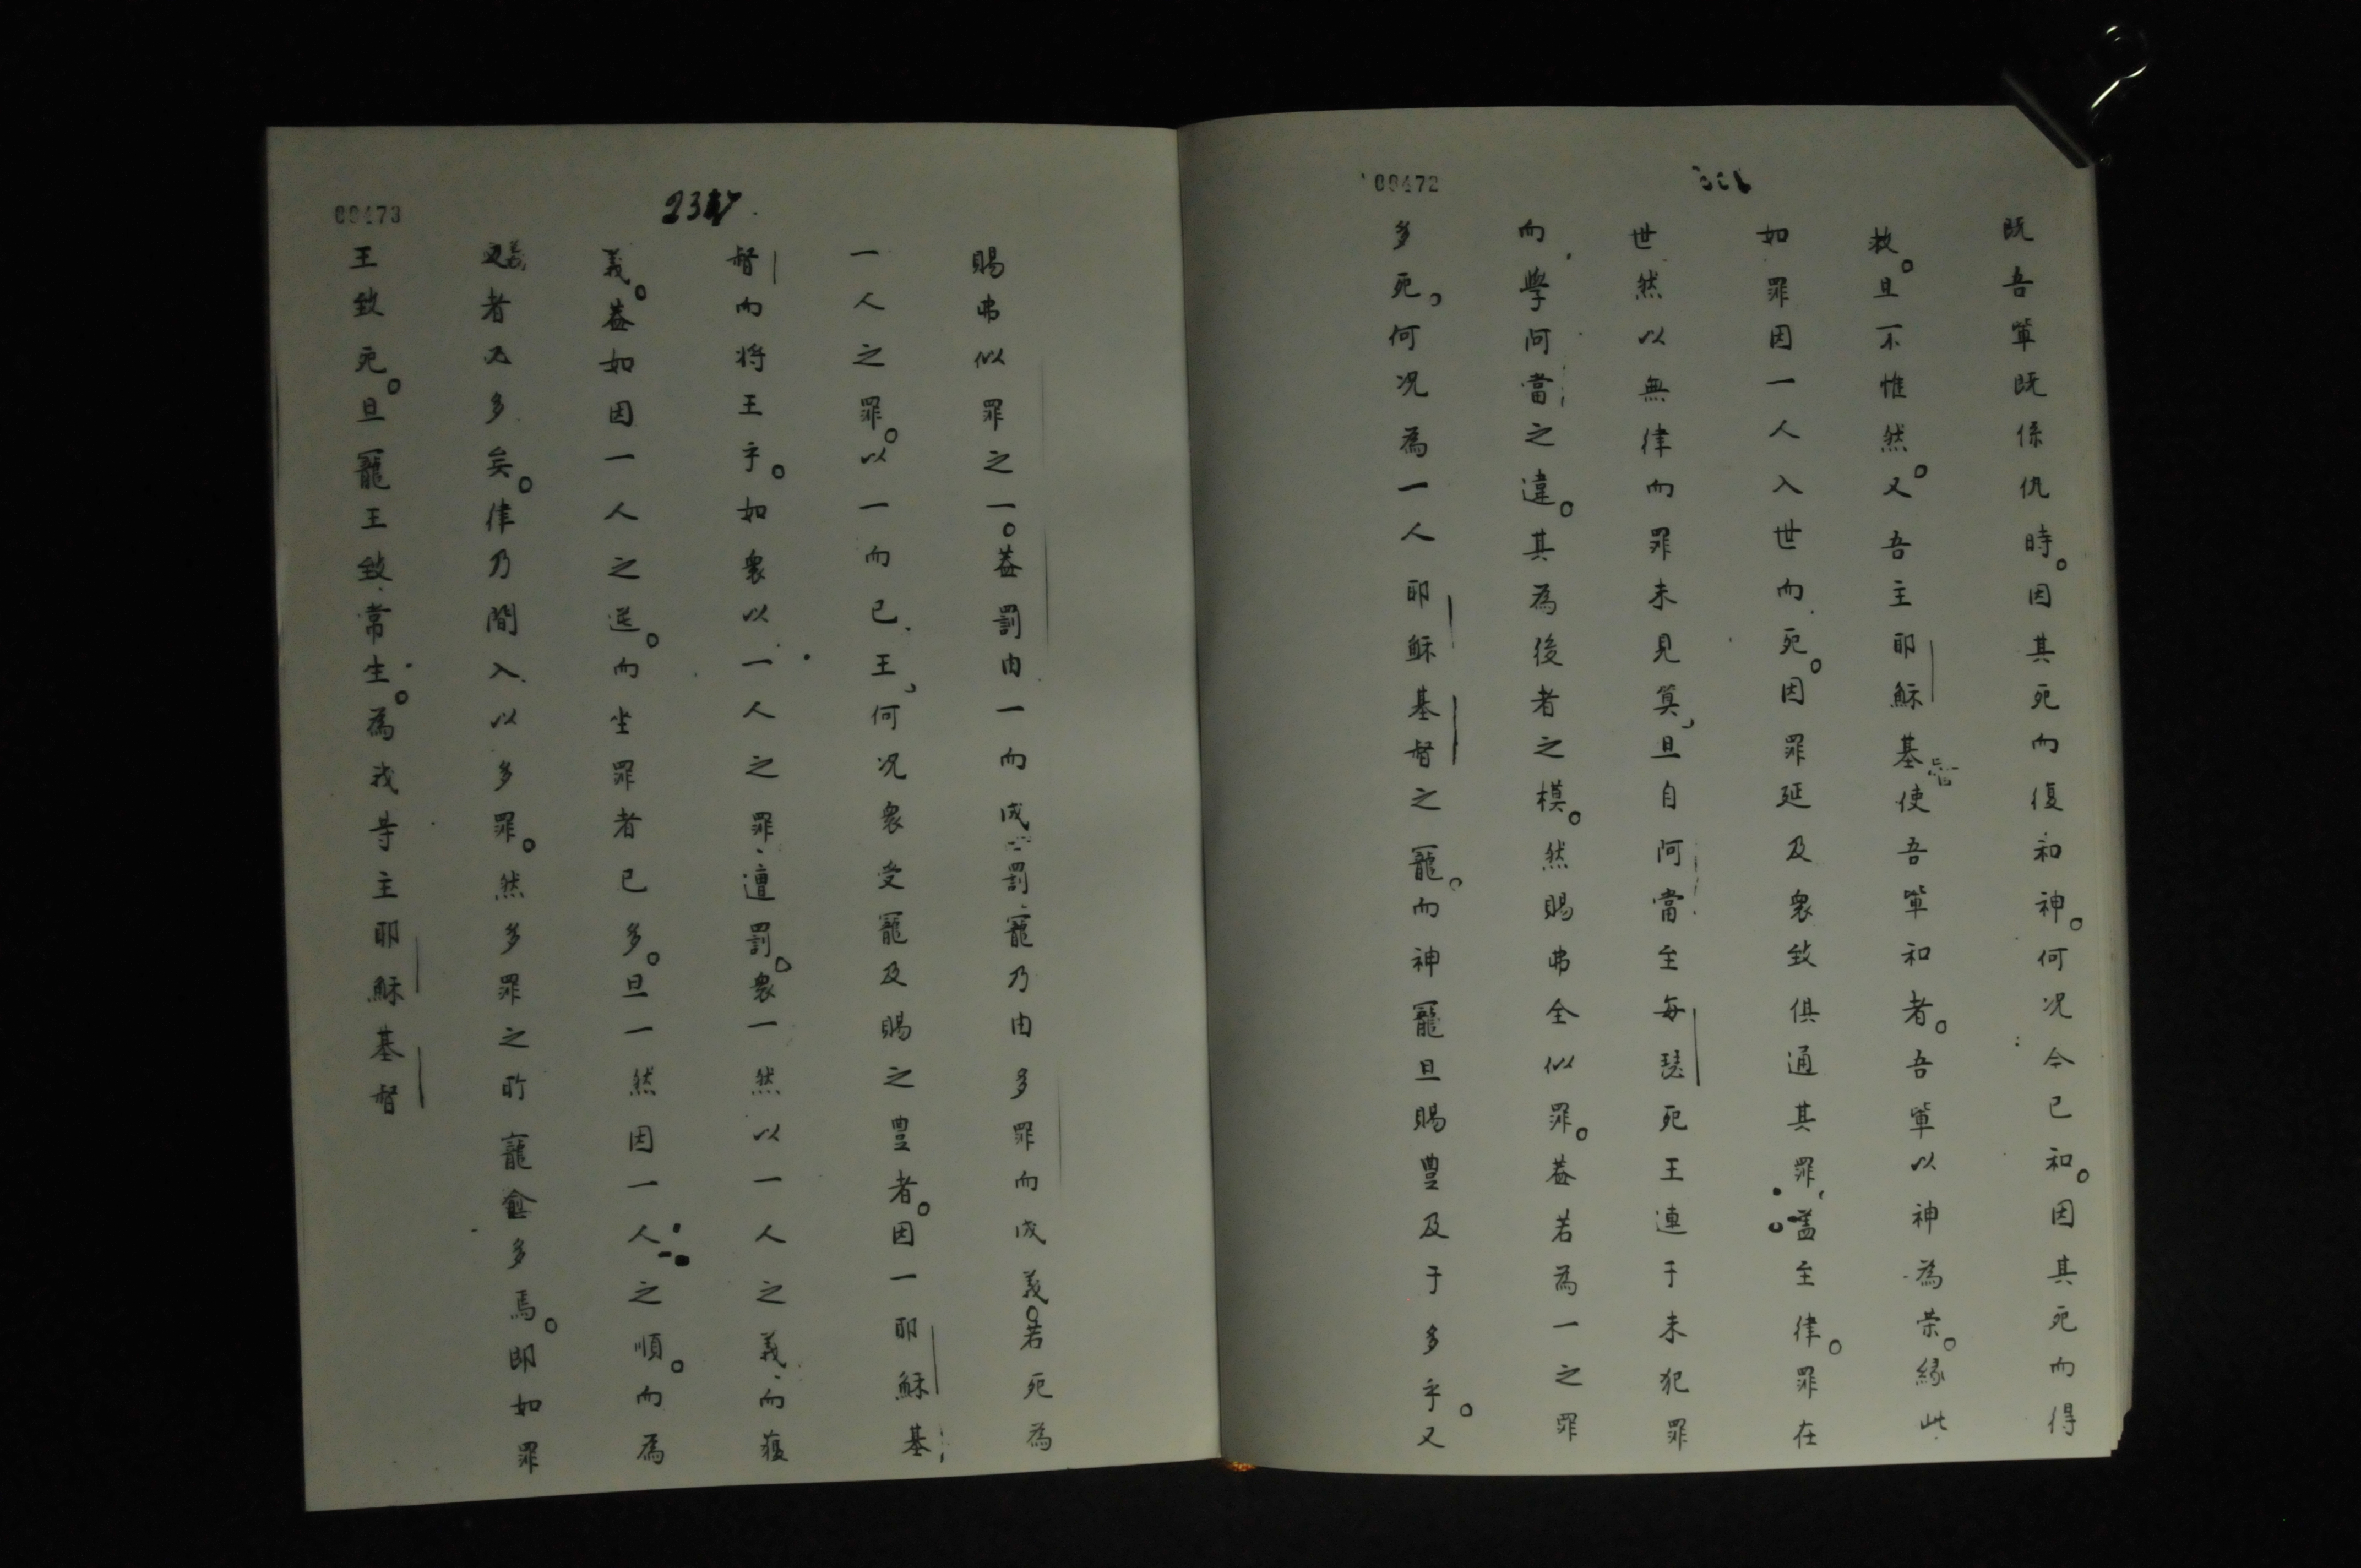 00472
既吾軰既係仇時。因其死而復和神。何况今已和。因其死而得
救。且不惟然。又吾主耶穌基督使吾軰和者。吾軰以神為荣。緣此
如罪因一人入世而死。因罪延及衆致俱通其罪，盖至律。罪在
世然以無律而罪未見算，且自阿當至每瑟死王連于未犯罪
而學阿當之違。其為後者之模。然賜弗全似罪。葢若為一之罪
多死。何况為一人耶穌基督之寵。而神寵且賜豊及于多乎。又
00473
賜弗似罪之一。葢罰由一而成罰寵乃由多罪而成義。若死為
一人之罪。以一而已王，何况衆受寵及賜之豊者。因一耶穌基
督而將王乎。如衆以一人之罪遭罰。衆一然以一人之義而獲
義。葢如因一人之逆。而坐罪者已多。且一然因一人之順。而為
義者多矣。律乃間入以多罪。然多罪之所寵愈多焉。即如罪
王致死。且寵王致常生。為我等主耶穌基督